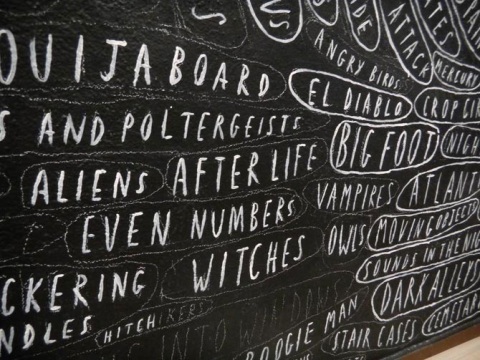 ATTACK
ANGRY BIRDS
MERCURY
OUIJA BOARD
EL DIABLO
CROP CIR
S AND POLTERGEISTS
BIG FOOT
NIGH
ALIENS
AFTER LIFE
VAMPIRES
ATLANT
EVEN NUMBERS
OWLS
MOVING OBJECT
WITCHES
SOUNDS IN THE NIG
CKERING
DARK ALLEYS
NDLES
HITCHIKERS
INTO WINDOWS
BOOGIE MAN
STAIR CASES
CEMETARI